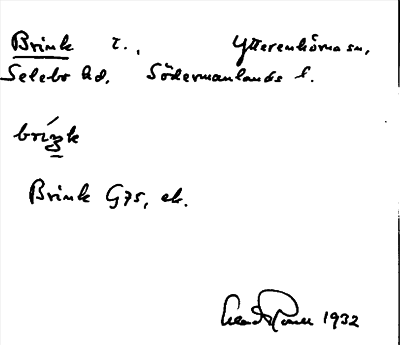 Brink t., Ytterenhörna sn,
Selebo hd, Södermanlands l.
bríŋk
Brink G75, ek.
1932